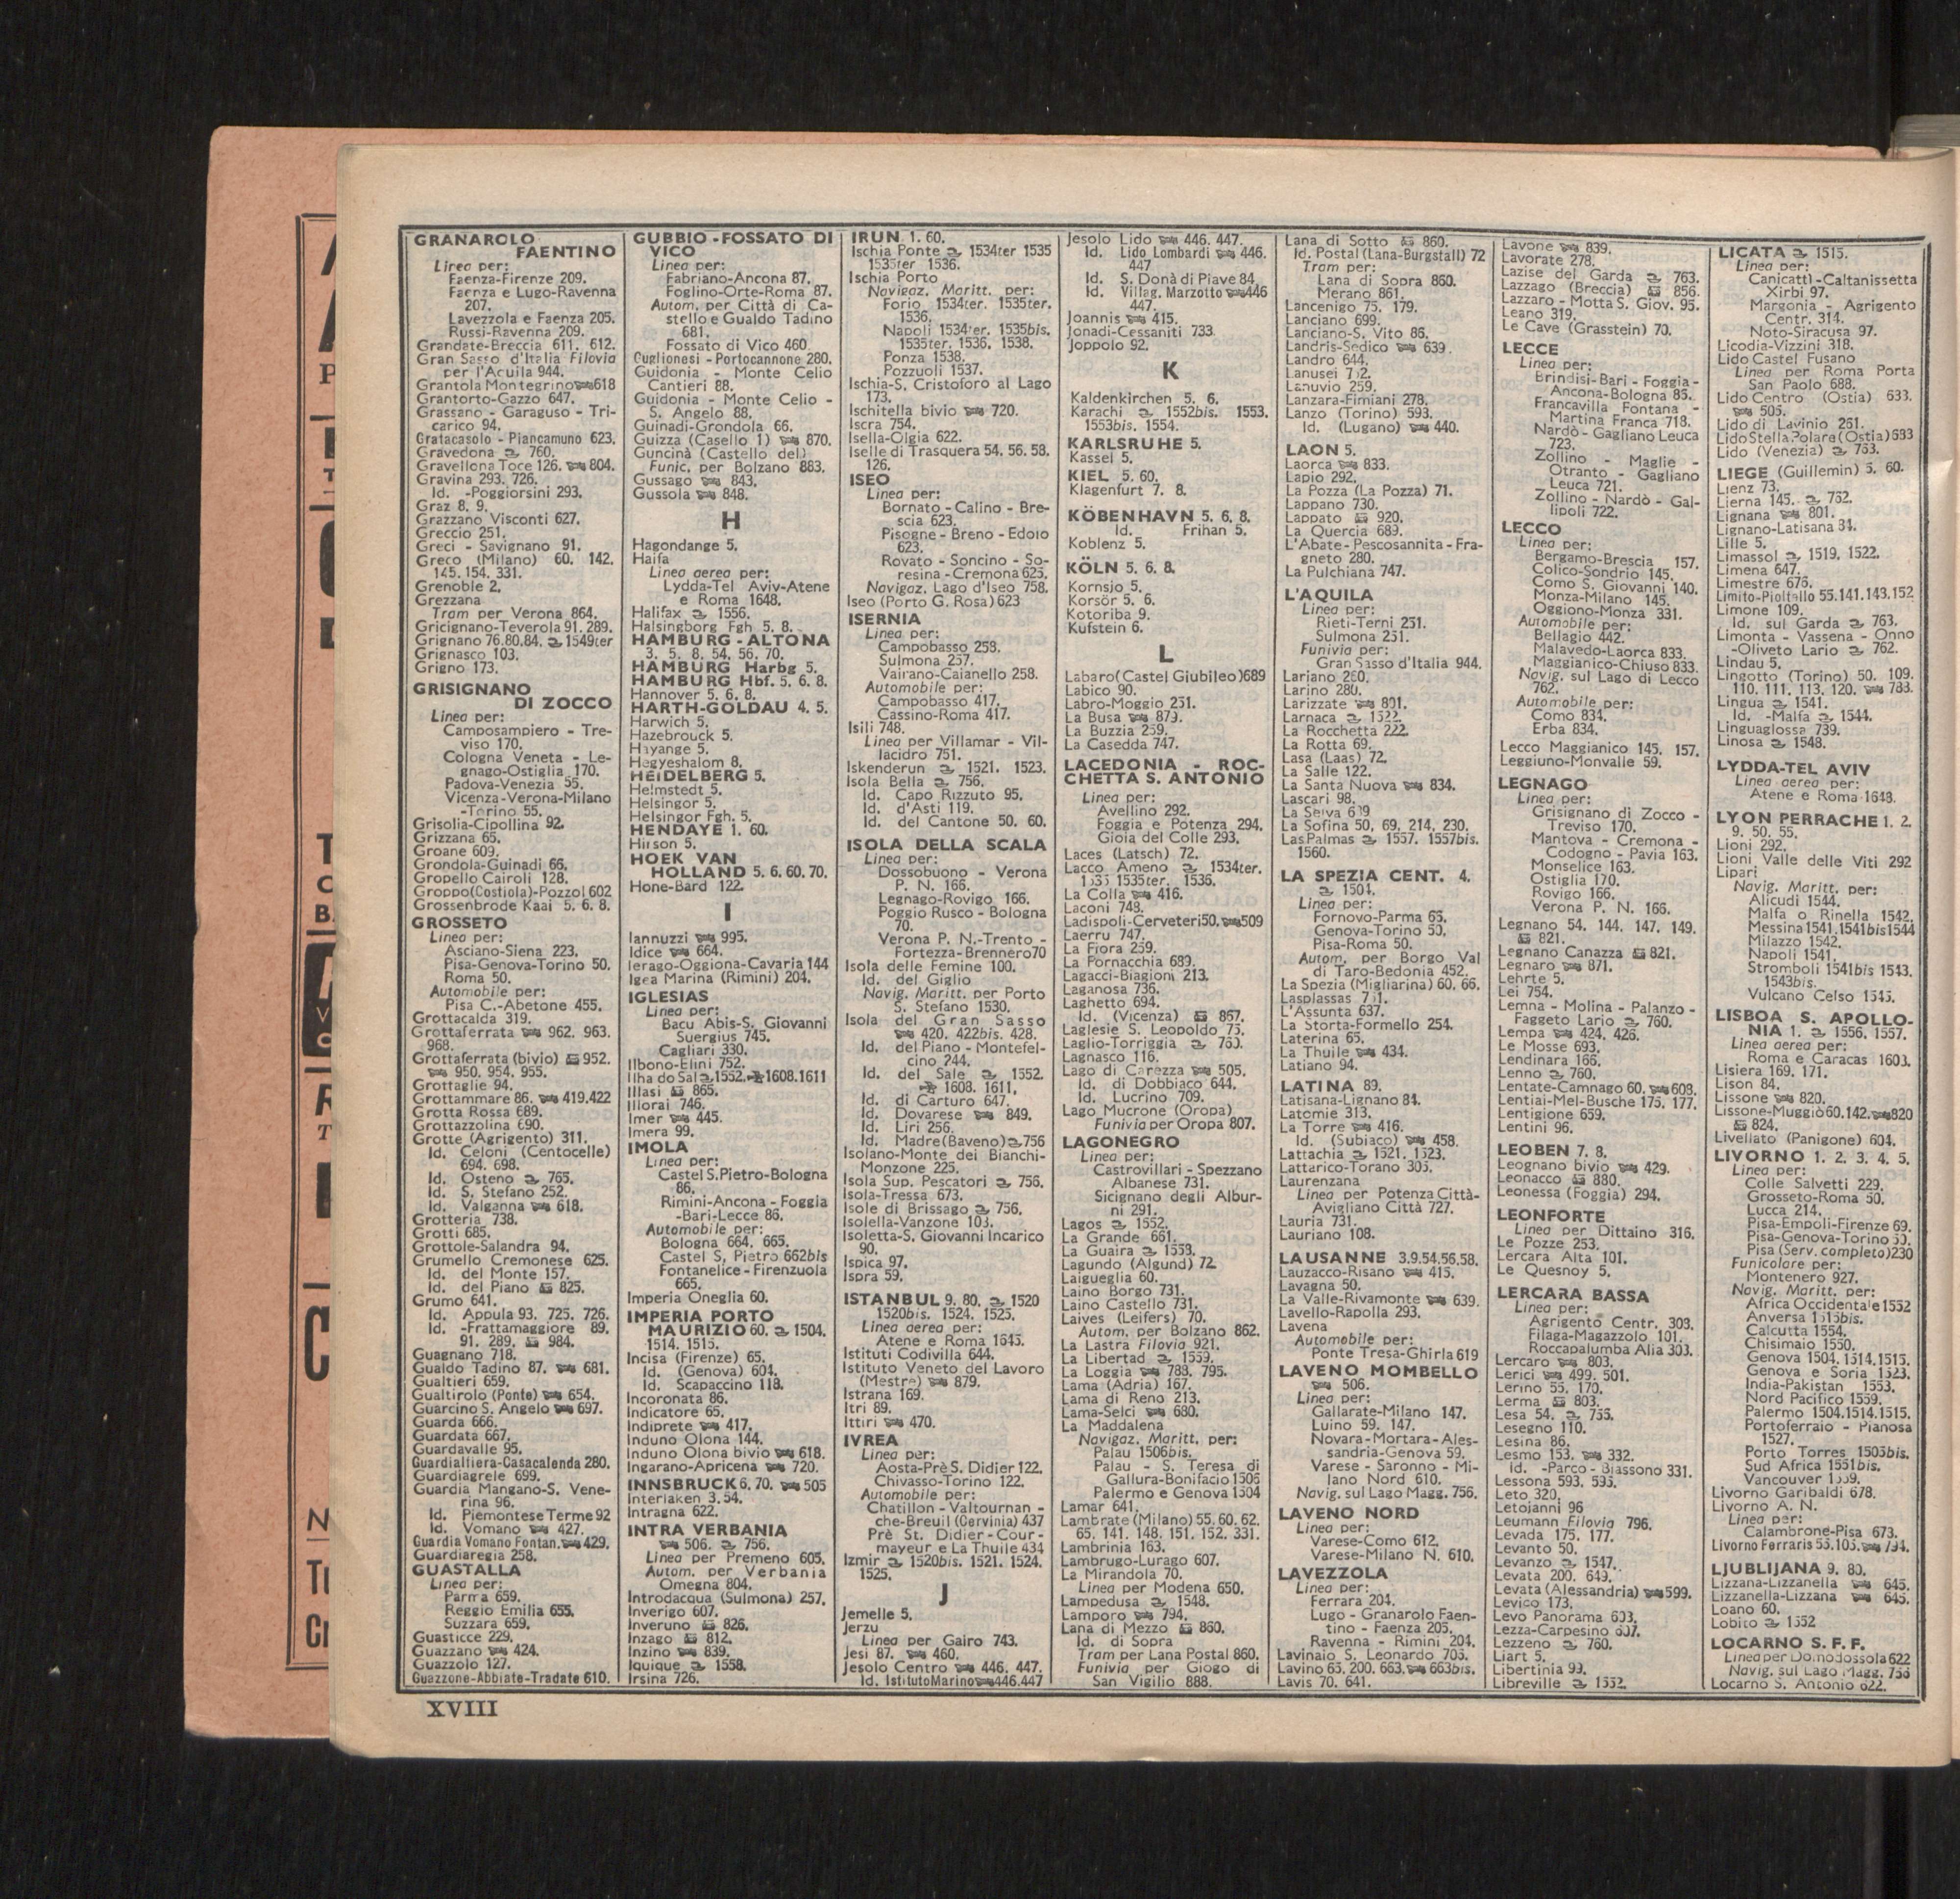 GRANAROLO
FAENTINO
Linea per:
Faenza-Firenze 209.
Faenza e Lugo-Ravenna
207.
Lavezzola e Faenza 205.
Russi-Ravenna 209.
Grandate-Breccia 611. 612.
Gran Sasso d'Italia Filovia
per l'Aquila 944.
Grantola Montegrino 618
Grantorto-Gazzo 647.
Grassano - Garaguso - Tri-
carico 94.
Gratacasolo - Piancamuno 623.
Gravedona 760.
Gravellona Toce 126. 804.
Gravina 293. 726.
Id. -Poggiorsini 293.
Graz 8. 9.
Grazzano Visconti 627.
Greccio 251.
Greci - Savignano 91.
Greco (Milano) 60. 142.
145. 154. 331.
Grenoble 2.
Grezzana
Tram per Verona 864.
Gricignano-Teverola 91. 289.
Grignano 76.80.84. 1549ter
Grignasco 103.
Grigno 173.
GRISIGNANO
DI ZOCCO
Linea per:
Camposampiero - Tre-
viso 170.
Cologna Veneta - Le-
gnago-Ostiglia 170.
Padova-Venezia 55.
Vicenza-Verona-Milano
-Torino 55.
Grisolia-Cipollina 92.
Grizzana 65.
Groane 609.
Grondola-Guinadi 66.
Gropello Cairoli 128.
Groppo(Costiola)-Pozzol 602
Grossenbrode Kaai 5. 6. 8.
GROSSETO
Linea per:
Asciano-Siena 223.
Pisa-Genova-Torino 50.
Roma 50.
Automobile per:
Pisa C.-Abetone 455.
Grottacalda 319.
Grottaferrata 962. 963.
968.
Grottaferrata (bivio) 952.
950. 954. 955.
Grottaglie 94.
Grottammare 86. 419.422
Grotta Rossa 689.
Grottazzolina 690.
Grotte (Agrigento) 311.
Id. Celoni (Centocelle)
694. 698.
Id. Osteno 765.
Id. S. Stefano 252.
Id. Valganna 618.
Grotteria 738.
Grotti 685.
Grottole-Salandra 94.
Grumello Cremonese 625.
Id. del Monte 157.
Id. del Piano 825.
Grumo 641.
Id. Appula 93. 725. 726.
Id. -Frattamaggiore 89.
91. 289. 984.
Guagnano 718.
Gualdo Tadino 87. 681.
Gualtieri 659.
Gualtirolo (Ponte) 654.
Guarcino S. Angelo 697.
Guarda 666.
Guardata 667.
Guardavalle 95.
Guardialfiera-Casacalenda 280.
Guardiagrele 699.
Guardia Mangano-S. Vene-
rina 96.
Id. Piemontese Terme 92
Id. Vomano 427.
Guardia Vomano Fontan. 429.
Guardiaregia 258.
GUASTALLA
Linea per:
Parma 659.
Reggio Emilia 655.
Suzzara 659.
Guasticce 229.
Guazzano 424.
Guazzolo 127.
Guazzone-Abbiate-Tradate 610.
GUBBIO - FOSSATO DI
VICO
Linea per:
Fabriano-Ancona 87.
Foglino-Orte-Roma 87.
Autom. per Città di Ca-
stello e Gualdo Tadino
681.
Fossato di Vico 460.
Guglionesi - Portocannone 280.
Guidonia - Monte Celio
Cantieri 88.
Guidonia - Monte Celio -
S. Angelo 88.
Guinadi-Grondola 66.
Guizza (Casello 1) 870.
Guncinà (Castello del)
Funic. per Bolzano 883.
Gussago 843.
Gussola 848.
H
Hagondange 5.
Haifa
Linea aerea per:
Lydda-Tel Aviv-Atene
e Roma 1648.
Halifax 1556.
Halsingborg Fgh 5. 8.
HAMBURG - ALTONA
3. 5. 8. 54. 56. 70.
HAMBURG Harbg 5.
HAMBURG Hbf. 5. 6. 8.
Hannover 5. 6. 8.
HARTH-GOLDAU 4. 5.
Harwich 5.
Hazebrouck 5.
Hayange 5.
Hegyeshalom 8.
HEIDELBERG 5.
Helmstedt 5.
Helsingor 5.
Helsingor Fgh. 5.
HENDAYE 1. 60.
Hirson 5.
HOEK VAN
HOLLAND 5. 6. 60. 70.
Hone-Bard 122.
I
Iannuzzi 995.
Idice 664.
Ierago-Oggiona-Cavaria 144
Igea Marina (Rimini) 204.
IGLESIAS
Linea per:
Bacu Abis-S. Giovanni
Suergius 745.
Cagliari 330.
Ilbono-Elini 752.
Ilha do Sal 1552. 1608.1611
Illasi 865.
Illorai 746.
Imer 445.
Imera 99.
IMOLA
Linea per:
Castel S.Pietro-Bologna
86.
Rimini-Ancona - Foggia
-Bari-Lecce 86.
Automobile per:
Bologna 664. 665.
Castel S. Pietro 662bis
Fontanelice - Firenzuola
665.
Imperia Oneglia 60.
IMPERIA PORTO
MAURIZIO 60. 1504.
1514. 1515.
Incisa (Firenze) 65.
Id. (Genova) 604.
Id. Scapaccino 118.
Incoronata 86.
Indicatore 65.
Indiprete 417.
Induno Olona 144.
Induno Olona bivio 618.
Ingarano-Apricena 720.
INNSBRUCK 6. 70. 505
Interlaken 3. 54.
Intragna 622.
INTRA VERBANIA
506. 756.
Linea per Premeno 605.
Autom. per Verbania
Omegna 804.
Introdacqua (Sulmona) 257.
Inverigo 607.
Inveruno 826.
Inzago 812.
Inzino 839.
Iquique 1558.
Irsina 726.
IRUN 1. 60.
Ischia Ponte 1534ter 1535
1535ter 1536.
Ischia Porto
Navigaz. Maritt. per:
Forio 1534ter. 1535ter.
1536.
Napoli 1534ter. 1535bis.
1535ter. 1536. 1538.
Ponza 1538.
Pozzuoli 1537.
Ischia-S. Cristoforo al Lago
173.
Ischitella bivio 720.
Iscra 754.
Isella-Olgia 622.
Iselle di Trasquera 54. 56. 58.
126.
ISEO
Linea per:
Bornato - Calino - Bre-
scia 623.
Pisogne - Breno - Edolo
623.
Rovato - Soncino - So-
resina - Cremona 625.
Navigaz. Lago d'Iseo 758.
Iseo (Porto G. Rosa) 623
ISERNIA
Linea per:
Campobasso 258.
Sulmona 257.
Vairano-Caianello 258.
Automobile per:
Campobasso 417.
Cassino-Roma 417.
Isili 748.
Linea per Villamar - Vil-
lacidro 751.
Iskenderun 1521. 1523.
Isola Bella 756.
Id. Capo Rizzuto 95.
Id. d'Asti 119.
Id. del Cantone 50. 60.
ISOLA DELLA SCALA
Linea per:
Dossobuono - Verona
P. N. 166.
Legnago-Rovigo 166.
Poggio Rusco - Bologna
70.
Verona P. N.-Trento -
Fortezza-Brennero 70
Isola delle Femine 100.
Id. del Giglio
Navig. Maritt. per Porto
S. Stefano 1530.
Isola del Gran Sasso
420. 422bis. 428.
Id. del Piano - Montefel-
cino 244.
Id. del Sale 1552.
1608. 1611.
Id. di Carturo 647.
Id. Dovarese 849.
Id. Liri 256.
Id. Madre(Baveno) 756
Isolano-Monte dei Bianchi-
Monzone 225.
Isola Sup. Pescatori 756.
Isola-Tressa 673.
Isole di Brissago 756.
Isolella-Vanzone 103.
Isoletta-S. Giovanni Incarico
90.
Ispica 97.
Ispra 59.
ISTANBUL 9. 80. 1520
1520bis. 1524. 1525.
Linea aerea per:
Atene e Roma 1645.
Istituti Codivilla 644.
Istituto Veneto del Lavoro
(Mestre) 879.
Istrana 169.
Itri 89.
Ittiri 470.
IVREA
Linea per:
Aosta-Prè S. Didier 122.
Chivasso-Torino 122.
Automobile per:
Chatillon - Valtournan -
che-Breuil (Cervinia) 437
Prè St. Didier - Cour-
mayeur e La Thuile 434
Izmir 1520bis. 1521. 1524.
1525.
J
Jemelle 5.
Jerzu
Linea per Gairo 743.
Jesi 87. 460.
Jesolo Centro 446. 447.
Id. Istituto Marino 446.447
Jesolo Lido 446. 447.
Id. Lido Lombardi 446.
447
Id. S. Donà di Piave 84.
Id. Villag. Marzotto 446
447.
Joannis 415.
Jonadi-Cessaniti 733.
Joppolo 92.
K
Kaldenkirchen 5. 6.
Karachi 1552bis. 1553.
1553bis. 1554.
KARLSRUHE 5.
Kassel 5.
KIEL 5. 60.
Klagenfurt 7. 8.
KÖBENHAVN 5. 6. 8.
Id. Frihan 5.
Koblenz 5.
KÖLN 5. 6. 8.
Kornsjo 5.
Korsör 5. 6.
Kotoriba 9.
Kufstein 6.
L
Labaro (Castel Giubileo) 689
Labico 90.
Labro-Moggio 251.
La Busa 879.
La Buzzia 259.
La Casedda 747.
LACEDONIA - ROC-
CHETTA S. ANTONIO
Linea per:
Avellino 292.
Foggia e Potenza 294.
Gioia del Colle 293.
Laces (Latsch) 72.
Lacco Ameno 1534ter.
1535 1535ter. 1536.
La Colla 416.
Laconi 748.
Ladispoli-Cerveteri 50. 509
Laerru 747.
La Fiora 259.
La Fornacchia 689.
Lagacci-Biagioni 213.
Laganosa 736.
Laghetto 694.
Id. (Vicenza) 867.
Laglesie S. Leopoldo 75.
Laglio-Torriggia 760.
Lagnasco 116.
Lago di Carezza 505.
Id. di Dobbiaco 644.
Id. Lucrino 709.
Lago Mucrone (Oropa)
Funivia per Oropa 807.
LAGONEGRO
Linea per:
Castrovillari - Spezzano
Albanese 731.
Sicignano degli Albur-
ni 291.
Lagos 1552.
La Grande 661.
La Guaira 1558.
Lagundo (Algund) 72
Laigueglia 60.
Laino Borgo 731.
Laino Castello 731.
Laives (Leifers) 70.
Autom. per Bolzano 862.
La Lastra Filovia 921.
La Libertad 1559.
La Loggia 788. 795.
Lama (Adria) 167.
Lama di Reno 213.
Lama-Selci 680.
La Maddalena
Navigaz. Maritt. per:
Palau 1506bis.
Palau - S. Teresa di
Gallura-Bonifacio 1506
Palermo e Genova 1504
Lamar 641.
Lambrate (Milano) 55. 60. 62.
65. 141. 148. 151. 152. 331.
Lambrinia 163.
Lambrugo-Lurago 607.
La Mirandola 70.
Linea per Modena 650.
Lampedusa 1548.
Lamporo 794.
Lana di Mezzo 860.
Id. di Sopra
Tram per Lana Postal 860.
Funivia per Giogo di
San Vigilio 888.
Lana di Sotto 860.
Id. Postal (Lana-Burgstall) 72
Tram per:
Lana di Sopra 860.
Merano 861.
Lancenigo 75. 179.
Lanciano 699.
Lanciano-S. Vito 86.
Landris-Sedico 639.
Landro 644.
Lanusei 752.
Lanuvio 259.
Lanzara-Fimiani 278.
Lanzo (Torino) 593.
Id. (Lugano) 440.
LAON 5.
Laorca 833.
Lapio 292.
La Pozza (La Pozza) 71.
Lappano 730.
Lappato 920.
La Quercia 689.
L'Abate-Pescosannita - Fra-
gneto 280.
La Pulchiana 747.
L'AQUILA
Linea per:
Rieti-Terni 251.
Sulmona 251.
Funivia per:
Gran Sasso d'Italia 944.
Lariano 260.
Larino 280.
Larizzate 801.
Larnaca 1522.
La Rocchetta 222.
La Rotta 69.
Lasa (Laas) 72.
La Salle 122.
La Santa Nuova 834.
Lascari 98.
La Selva 689
La Sofina 50. 69. 214. 230.
Las Palmas 1557. 1557bis.
1560.
LA SPEZIA CENT. 4.
1504.
Linea per:
Fornovo-Parma 66.
Genova-Torino 50.
Pisa-Roma 50.
Autom. per Borgo Val
di Taro-Bedonia 452.
La Spezia (Migliarina) 60. 66.
Lasplassas 751.
L'Assunta 637.
La Storta-Formello 254.
Laterina 65.
La Thuile 434.
Latiano 94.
LATINA 89.
Latisana-Lignano 84.
Latomie 313.
La Torre 416.
Id. (Subiaco) 458.
Lattachia 1521. 1523.
Lattarico-Torano 305.
Laurenzana
Linea per Potenza Città-
Avigliano Città 727.
Lauria 731.
Lauriano 108.
LAUSANNE 3.9.54.56.58.
Lauzacco-Risano 415.
Lavagna 50.
La Valle-Rivamonte 639.
Lavello-Rapolla 293.
Lavena
Automobile per:
Ponte Tresa-Ghirla 619
LAVENO MOMBELLO
506.
Linea per:
Gallarate-Milano 147.
Luino 59. 147.
Novara-Mortara-Ales-
sandria-Genova 59.
Varese - Saronno - Mi-
lano Nord 610.
Navig. sul Lago Magg. 756.
LAVENO NORD
Linea per:
Varese-Como 612.
Varese-Milano N. 610.
LAVEZZOLA
Linea per:
Ferrara 204.
Lugo - Granarolo Faen-
tino - Faenza 205.
Ravenna - Rimini 204.
Lavinaio S. Leonardo 705.
Lavino 65. 200. 663. 663bis.
Lavis 70. 641.
Lavone 839.
Lavorate 278.
Lazise del Garda 763.
Lazzago (Breccia) 856.
Lazzaro - Motta S. Giov. 95.
Leano 319.
Le Cave (Grasstein) 70.
LECCE
Linea per:
Brindisi-Bari - Foggia -
Ancona-Bologna 85.
Francavilla Fontana -
Martina Franca 718.
Nardò - Gagliano Leuca
723.
Zollino - Maglie -
Otranto - Gagliano
Leuca 721.
Zollino - Nardò - Gal-
lipoli 722.
LECCO
Linea per:
Bergamo-Brescia 157.
Colico-Sondrio 145.
Como S. Giovanni 140.
Monza-Milano 145.
Oggiono-Monza 331.
Automobile per:
Bellagio 442.
Malavedo-Laorca 833.
Maggianico-Chiuso 833.
Navig. sul Lago di Lecco
762.
Automobile per:
Como 834.
Erba 834.
Lecco Maggianico 145. 157.
Leggiuno-Monvalle 59.
LEGNAGO
Linea per:
Grisignano di Zocco -
Treviso 170.
Mantova - Cremona -
Codogno - Pavia 163.
Monselice 163.
Ostiglia 170.
Rovigo 166.
Verona P. N. 166.
Legnano 54. 144. 147. 149.
821.
Legnano Canazza 821.
Legnaro 871.
Lehrte 5.
Lei 754.
Lemna - Molina - Palanzo -
Faggeto Lario 760.
Lempa 424. 426.
Le Mosse 693.
Lendinara 166.
Lenno 760.
Lentate-Camnago 60. 608.
Lentiai-Mel-Busche 175. 177.
Lentigione 659.
Lentini 96.
LEOBEN 7. 8.
Leognano bivio 429.
Leonacco 880.
Leonessa (Foggia) 294.
LEONFORTE
Linea per Dittaino 316.
Le Pozze 253.
Lercara Alta 101.
Le Quesnoy 5.
LERCARA BASSA
Linea per:
Agrigento Centr. 303.
Filaga-Magazzolo 101.
Roccapalumba Alia 303.
Lercaro 803.
Lerici 499. 501.
Lerino 55. 170.
Lerma 803.
Lesa 54. 756.
Lesegno 110.
Lesina 86.
Lesmo 153. 332.
Id. -Parco - Biassono 331.
Lessona 593. 595.
Leto 320.
Letojanni 96
Leumann Filovia 796.
Levada 175. 177.
Levanto 50.
Levanzo 1547.
Levata 200. 649.
Levata (Alessandria) 599.
Levico 173.
Levo Panorama 603.
Lezza-Carpesino 607.
Lezzeno 760.
Liart 5.
Libertinia 99.
Libreville 1552.
LICATA 1515.
Linea per:
Canicattì -Caltanissetta
Xirbi 97.
Margonia - Agrigento
Centr. 314.
Noto-Siracusa 97.
Licodia-Vizzini 318.
Lido Castel Fusano
Linea per Roma Porta
San Paolo 688.
Lido Centro (Ostia) 633.
505.
Lido di Lavinio 261.
Lido Stella Polare (Ostia) 633
Lido (Venezia) 753.
LIEGE (Guillemin) 5. 60.
Lienz 73.
Lierna 145. 762.
Lignana 801.
Lignano-Latisana 84.
Lille 5.
Limassol 1519. 1522.
Limena 647.
Limestre 676.
Limito-Pioltello 55.141.143.152
Limone 109.
Id. sul Garda 763.
Limonta - Vassena - Onno
-Oliveto Lario 762.
Lindau 5.
Lingotto (Torino) 50. 109.
110. 111. 113. 120. 788.
Lingua 1541.
Id. -Malfa 1544.
Linguaglossa 739.
Linosa 1548.
LYDDA-TEL AVIV
Linea aerea per:
Atene e Roma 1648.
LYON PERRACHE 1. 2.
9. 50. 55.
Lioni 292.
Lioni Valle delle Viti 292
Lipari
Navig. Maritt. per:
Alicudi 1544.
Malfa o Rinella 1542.
Messina 1541.1541bis 1544
Milazzo 1542.
Napoli 1541.
Stromboli 1541bis 1543.
1543bis.
Vulcano Celso 1545.
LISBOA S. APOLLO-
NIA 1. 1556. 1557.
Linea aerea per:
Roma e Caracas 1603.
Lisiera 169. 171.
Lison 84.
Lissone 820.
Lissone-Muggiò 60.142. 820
824.
Livellato (Panigone) 604.
LIVORNO 1. 2. 3. 4. 5.
Linea per:
Colle Salvetti 229.
Grosseto-Roma 50.
Lucca 214.
Pisa-Empoli-Firenze 69.
Pisa-Genova-Torino 50.
Pisa (Serv. completo) 230
Funicolare per:
Montenero 927.
Navig. Maritt. per:
Africa Occidentale 1552
Anversa 1515bis.
Calcutta 1554.
Chisimaio 1550.
Genova 1504. 1514.1515.
Genova e Soria 1523.
India-Pakistan 1553.
Nord Pacifico 1559.
Palermo 1504.1514.1515.
Portoferraio - Pianosa
1527.
Porto Torres 1505bis.
Sud Africa 1551bis.
Vancouver 1559.
Livorno Garibaldi 678.
Livorno A. N.
Linea per:
Calambrone-Pisa 673.
Livorno Ferraris 55.105. 794.
LJUBLIJANA 9. 80.
Lizzana-Lizzanella 645.
Lizzanella-Lizzana 645.
Loano 60.
Lobito 1552
LOCARNO S. F. F.
Linea per Domodossola 622
Navig. sul Lago Magg. 756
Locarno S. Antonio 622.
XVIII